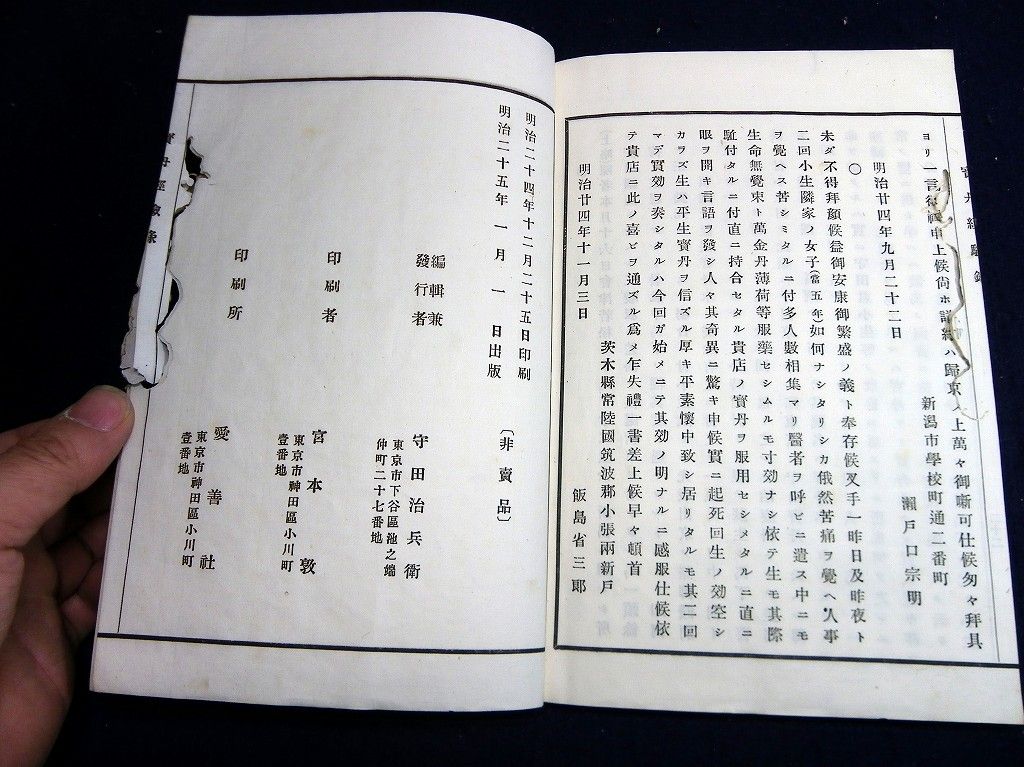 寶丹經驗錄
ヨリ一言御禮申上候尙ホ詳細ハ歸京ノ上萬々御噺可仕候匆々拜具
明治廿四年九月二十二日
新潟市學校町通二番町
瀨戶口宗明
〇
未ダ不得拜顏候益御安康御繁盛ノ義ト奉存候叉手一昨日及昨夜ト
二回小生隣家ノ女子(當五年)如何ナシタリシカ俄然苦痛ヲ覺ヘ人事
ヲ覺ヘス苦シミタルニ付多人數相集マリ醫者ヲ呼ビニ遣ス中ニモ
生命無覺束ト萬金丹薄荷等服藥セシムルモ寸効ナシ依テ生モ其際
駈付タルニ付直ニ持合セタル貴店ノ寶丹ヲ服用セシメタルニ直ニ
眼ヲ開キ言語ヲ發シ人々其奇異ニ驚キ申候實ニ起死回生ノ効空シ
カラズ生ハ平生寶丹ヲ信ズル厚キ平素懷中致シ居リタルモ其二回
マデ實効ヲ奏シタルハ今回ガ始メニテ其効ノ明ナルニ感服仕候依
テ貴店ニ此ノ喜ビヲ通ズル爲メ乍失禮一書差上候早々頓首
茨木縣常陸國筑波郡小張兩新戶
明治廿四年十一月三日
飯島省三郞
明治二十四年十二月二十五日印刷
明治二十五年一月一日出版
〔非賣品〕
編輯兼
發行者
守田治兵衛
東京市下谷區池之端
仲町二十七番地
印刷者
宮本敦
東京市神田區小川町
壹番地
印刷所
愛善社
東京市神田區小川町
壹番地